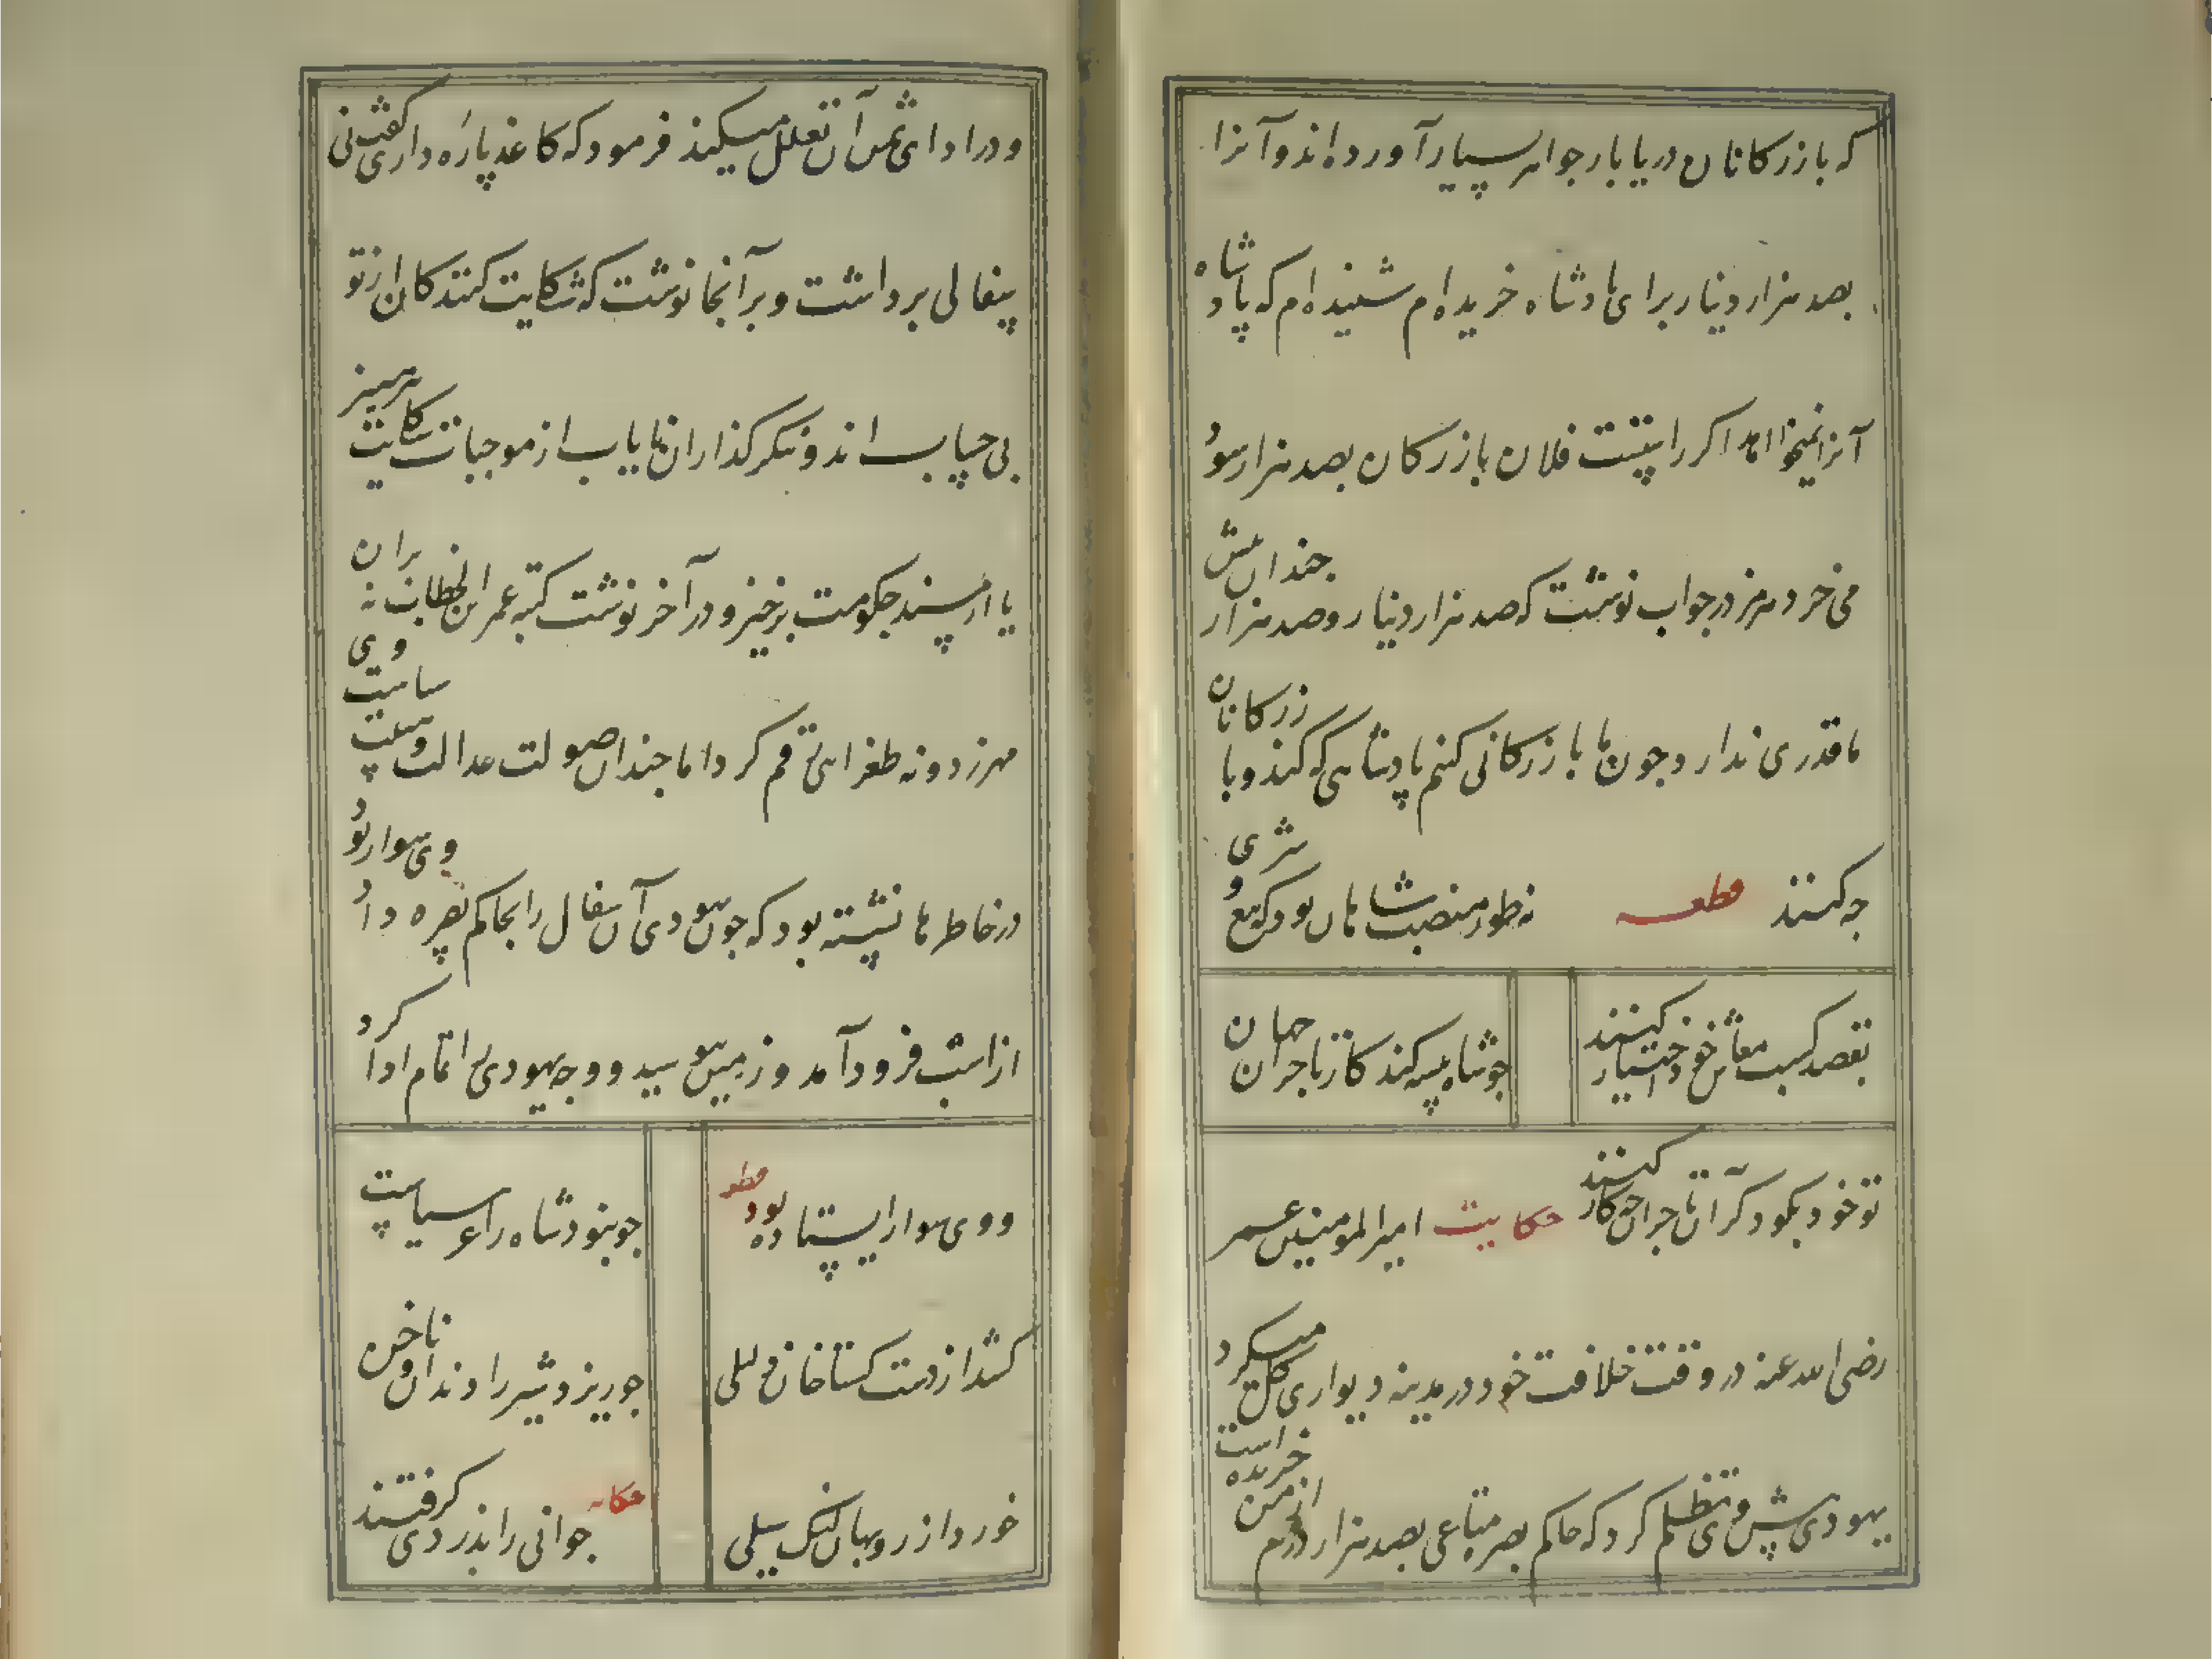 که بازرکانان دریا بار جواهر بسیار آورده اند و آنرا
بصد هزار دینار برای پادشاه خریده ام شنیده ام که پادشاه
آنرا نمیخواهد اکر راستست فلان بازرکان بصد هزار سود
می خرد هرمز در جواب نوشت که صد هزار دینار و صد هزار چندان پیش
ما قدری ندارد چون ما بازرکانی کنیم پادشاهی که کند و بازرکانان
چه کنند قطعه نه طور منصب شاهان بود که بیع و شری
بقصد کسب معاش خود اختیار کنند
چو شاه پیشه کند کار تاجران جهان
تو خود بکو دکر آن تاجران چه کار کنند حکایت امیر المومنین عمر
رضی الله عنه در وقت خلافت خود در مدینه دیواری کل میکرد
یهودی پیش وی تظلم کرد که حاکم بصره متاعی بصد هزار درم از من خریده است
و در ادای ثمن آن تعلل میکند فرمود که کاغذ پاره داری کفت نی
سفالی برداشت و بر آنجا نوشت که شکایت کنندکان از تو
بی حساب اند و شکر کذاران نایاب از موجبات شکایت بپرهیز
یا از مسند حکومت برخیز و در آخر نوشت کتبه عمر ابن الخطاب نه بران
مهر زد و نه طغرایی رقم کرد اما چندان صولت عدالت و هیبت سیاست وی
در خاطرها نشسته بود که چون یهودی آن سفال را بحاکم بصره داد وی سوار بود
از اسب فرود آمد و زمین بوسید و وجه یهودی را تمام ادا کرد
و وی سوار ایستاده بود قطعه
چو بنود شاه را عز سیاست
کشد از دست کستاخان وی للی
چو ریزد شیر را دندان و ناخن
خورد از روبهان لنک سیلی
حکایه جوانی را بدزدی کرفتند